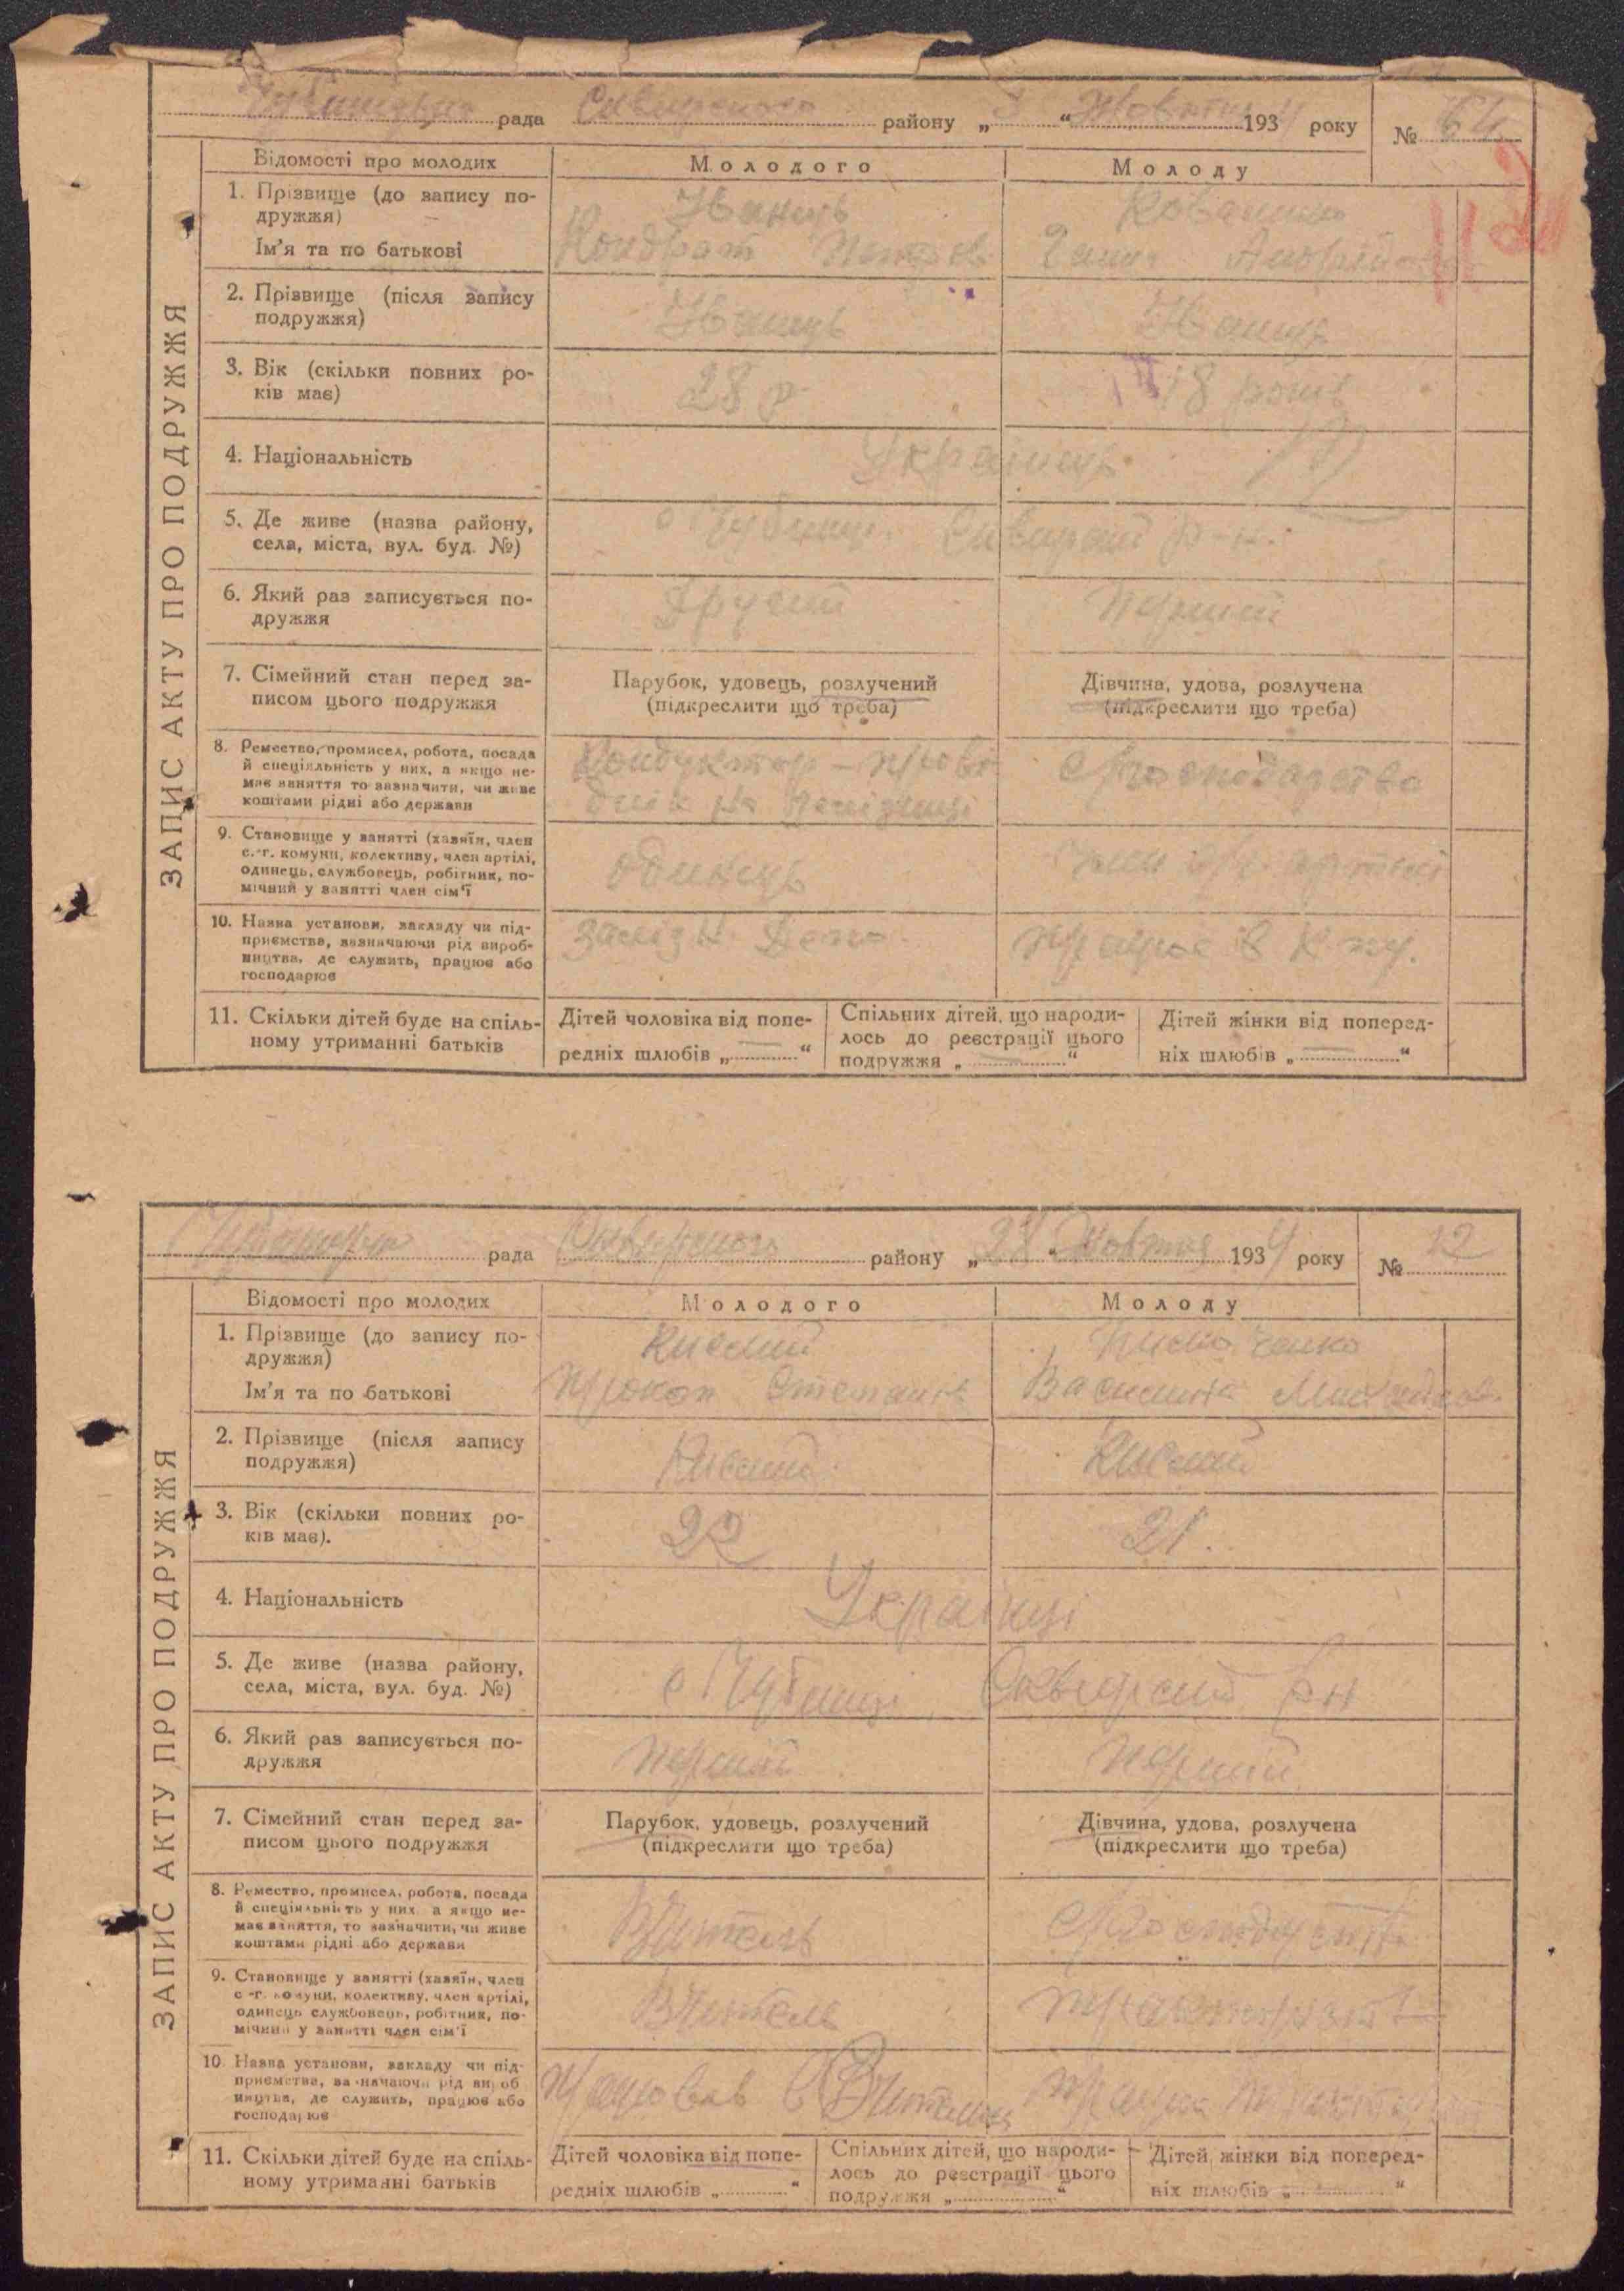 рада Сквирського району „ 3 “ Жовтня 1934 року № 64
ЗАПИС АКТУ ПРО ПОДРУЖЖЯ
Відомості про молодих Молодого Молоду
1. Прізвище (до запису по-
дружжя)
Ім'я та по батькові Кондрат
2. Прізвище (після запису
подружжя)
3. Вік (скільки повних ро-
ків має) 28 р 18 років
4. Національність Українці
5. Де живе (назва району,
села, міста, вул. буд. №) с Чубинці Сквирский р-н.
6. Який раз записується по-
дружжя Другий Перший
7. Сімейний стан перед за-
писом цього подружжя
Парубок, удовець, розлучений
(підкреслити що треба)
Дівчина, удова, розлучена
(підкреслити що треба)
8. Ремество, промисел, робота, посада
й спеціяльність у них, а якщо не-
має заняття то зазначити, чи живе
коштами рідні або держави
Кондуктор - прові
дник на
с/господарство
9. Становище у занятті (хазяїн, член
с.-г. комуни, колективу, член артілі,
одинець, службовець, робітник, по-
мічний у занятті член сім'ї
одинець
член с/г артілі
10. Назва установи, закладу чи під-
приємства, зазначаючи рід вироб-
ництва, де служить, працює або
господарює
Депо
працює в
11. Скільки дітей буде на спіль-
ному утриманні батьків
Дітей чоловіка від попе-
редніх шлюбів „ — “
Спільних дітей, що народи-
лось до реєстрації цього
подружжя „ — “
Дітей жінки від поперед-
ніх шлюбів „ — “
рада Сквирського району „ 24 “ Жовтня 1934 року № 12
ЗАПИС АКТУ ПРО ПОДРУЖЖЯ
Відомості про молодих Молодого Молоду
1. Прізвище (до запису по-
дружжя) Кислий
Ім'я та по батькові Прокоп Степанів Василина
2. Прізвище (після запису
подружжя) Кислий Кислий
3. Вік (скільки повних ро-
ків має). 22 21.
4. Національність Українці
5. Де живе (назва району,
села, міста, вул. буд. №) с Чубинці, Сквирский р-н
6. Який раз записується по-
дружжя Перший Перший
7. Сімейний стан перед за-
писом цього подружжя
Парубок, удовець, розлучений
(підкреслити що треба)
Дівчина, удова, розлучена
(підкреслити що треба)
8. Ремество, промисел, робота, посада
й спеціяльність у них, а якщо не-
має заняття, то зазначити, чи живе
коштами рідні або держави
Вчитель
с/господарство
9. Становище у занятті (хазяїн, член
с-г. комуни, колективу, член артілі,
одинець службовець, робітник, по-
мічний у занятті член сім'ї
Вчитель
10. Назва установи, закладу чи під-
приємства, зазначаючи рід вироб
ництва, де служить, працює або
господарює
Працював Вчителем
11. Скільки дітей буде на спіль-
ному утриманні батьків
Дітей чоловіка від попе-
редніх шлюбів „ “
Спільних дітей, що народи-
лось до реєстрації цього
подружжя „ “
Дітей жінки від поперед-
ніх шлюбів „ “